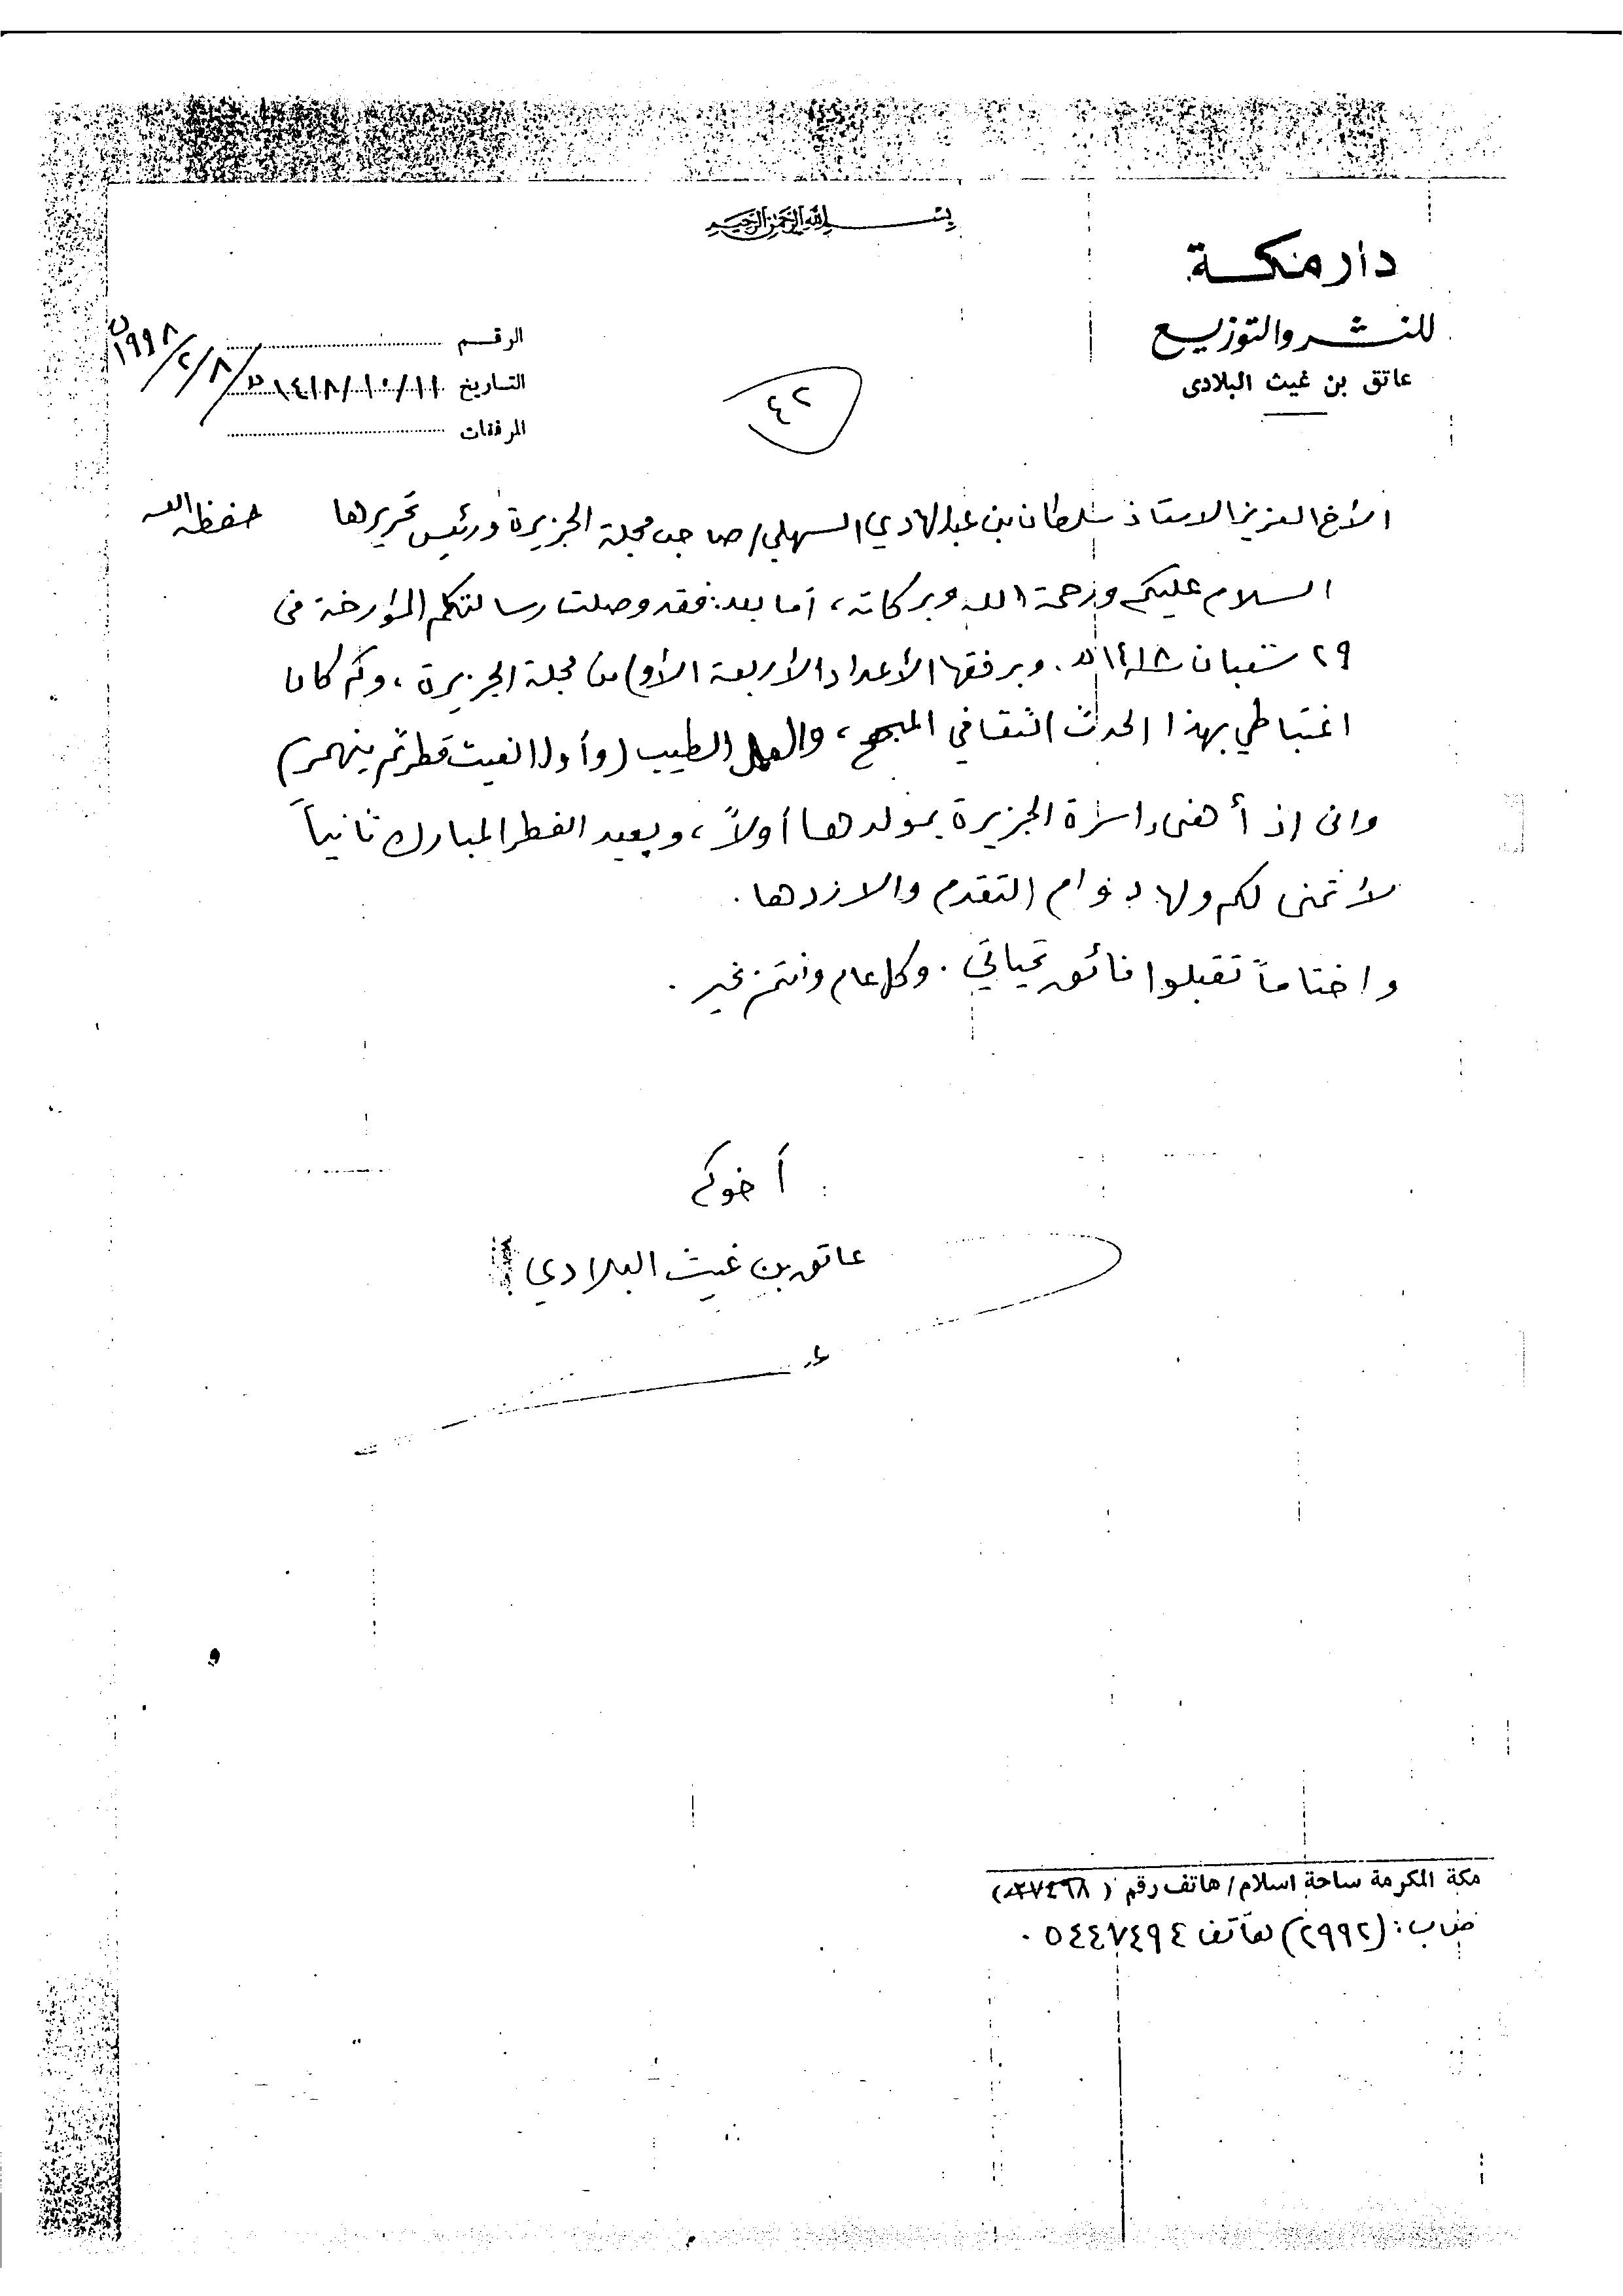 بسم الله الرحمن الرحيم
دار مكة
للنشر والتوزيع
عاتق بن غيث البلادى
الرقم
التاريخ ١٤١٨/١٠/١١هـ ١٩٩٨/٢/٨
المرفقات
٤٢
الأخ العزيز الاستاذ سلطان بن عبدالهادي السهلي/صاحب مجلة الجزيرة ورئيس تحريرها حفظه الله
السلام عليكم ورحمة الله وبركاته، أما بعد: فقد وصلت رسالتكم المؤرخة في
٢٩ شعبان ١٤١٨هـ. وبرفقها الأعداد الأربعة الأول من مجلة الجزيرة، وكم كان
اغتباطي بهذا الحدث الثقافي المبهج، والعمل الطيب (وأول الغيث قطر ثم ينهمر)
واني إذ أهنىء اسرة الجزيرة بمولدها أولاً، وبعيد الفطر المبارك ثانياً
لأتمنى لكم ولها دوام التقدم والازدها.
واختاماً تقبلوا فائق تحياتي. وكل عام وأنتم بخير.
أخوكم
عاتق بن غيث البلادي
مكة المكرمة ساحة اسلام/هاتف رقم
ص.ب: (٢٩٩٢) هاتف ٥٤٤٧٤٩٤.